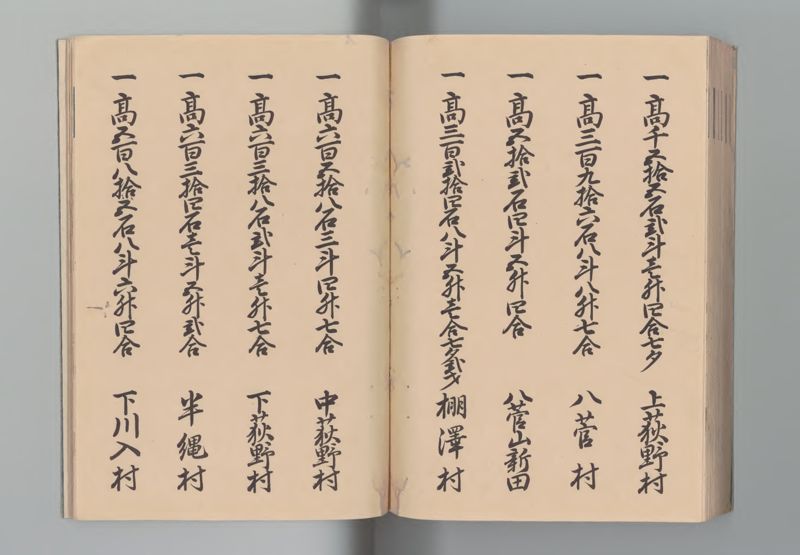 一 高千五拾五石弐斗壱升四合七夕 上荻野村
一 高三百九拾六石八斗八升七合 八菅村
一 高五拾弐石四斗五升四合 八菅山新田
一 高三百弐拾四石八斗五升壱合七夕弐才 棚澤村
一 高六百五拾八石三斗四升七合 中荻野村
一 高六百三拾八石弐斗壱升七合 下荻野村
一 高六百三拾四石壱斗五升弐合 半縄村
一 高五百八拾五石八斗六升四合 下川入村